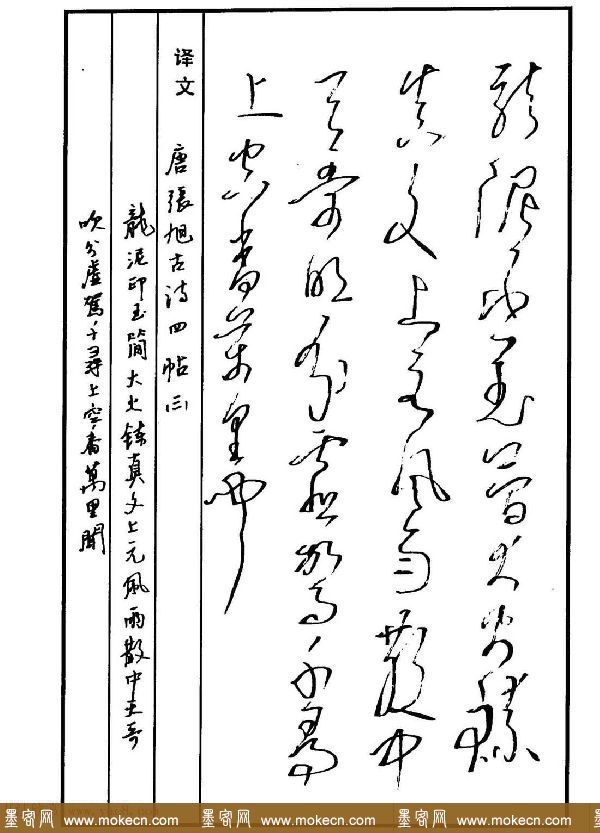 龍泥印玉簡大火鍊
真文上元風雨散中
天哥吹分虛駕千尋
上空香萬里聞
译文 唐張旭古诗四帖(三)
龍泥印玉簡大火鍊真文上元風雨散中天哥
吹分虛駕千尋上空香萬里聞
墨客网 www.mokecn.com 墨客网 www.mokecn.com 墨客网 www.mokecn.com